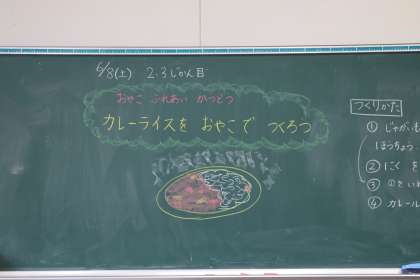 6/8(土) 2.3じかん目
おやこ ふれあい かつどう
カレーライスを おやこで つくろう
つくりかた
① じゃがいも
ほうちょう
② にく を
③ ①とい
④ カレール